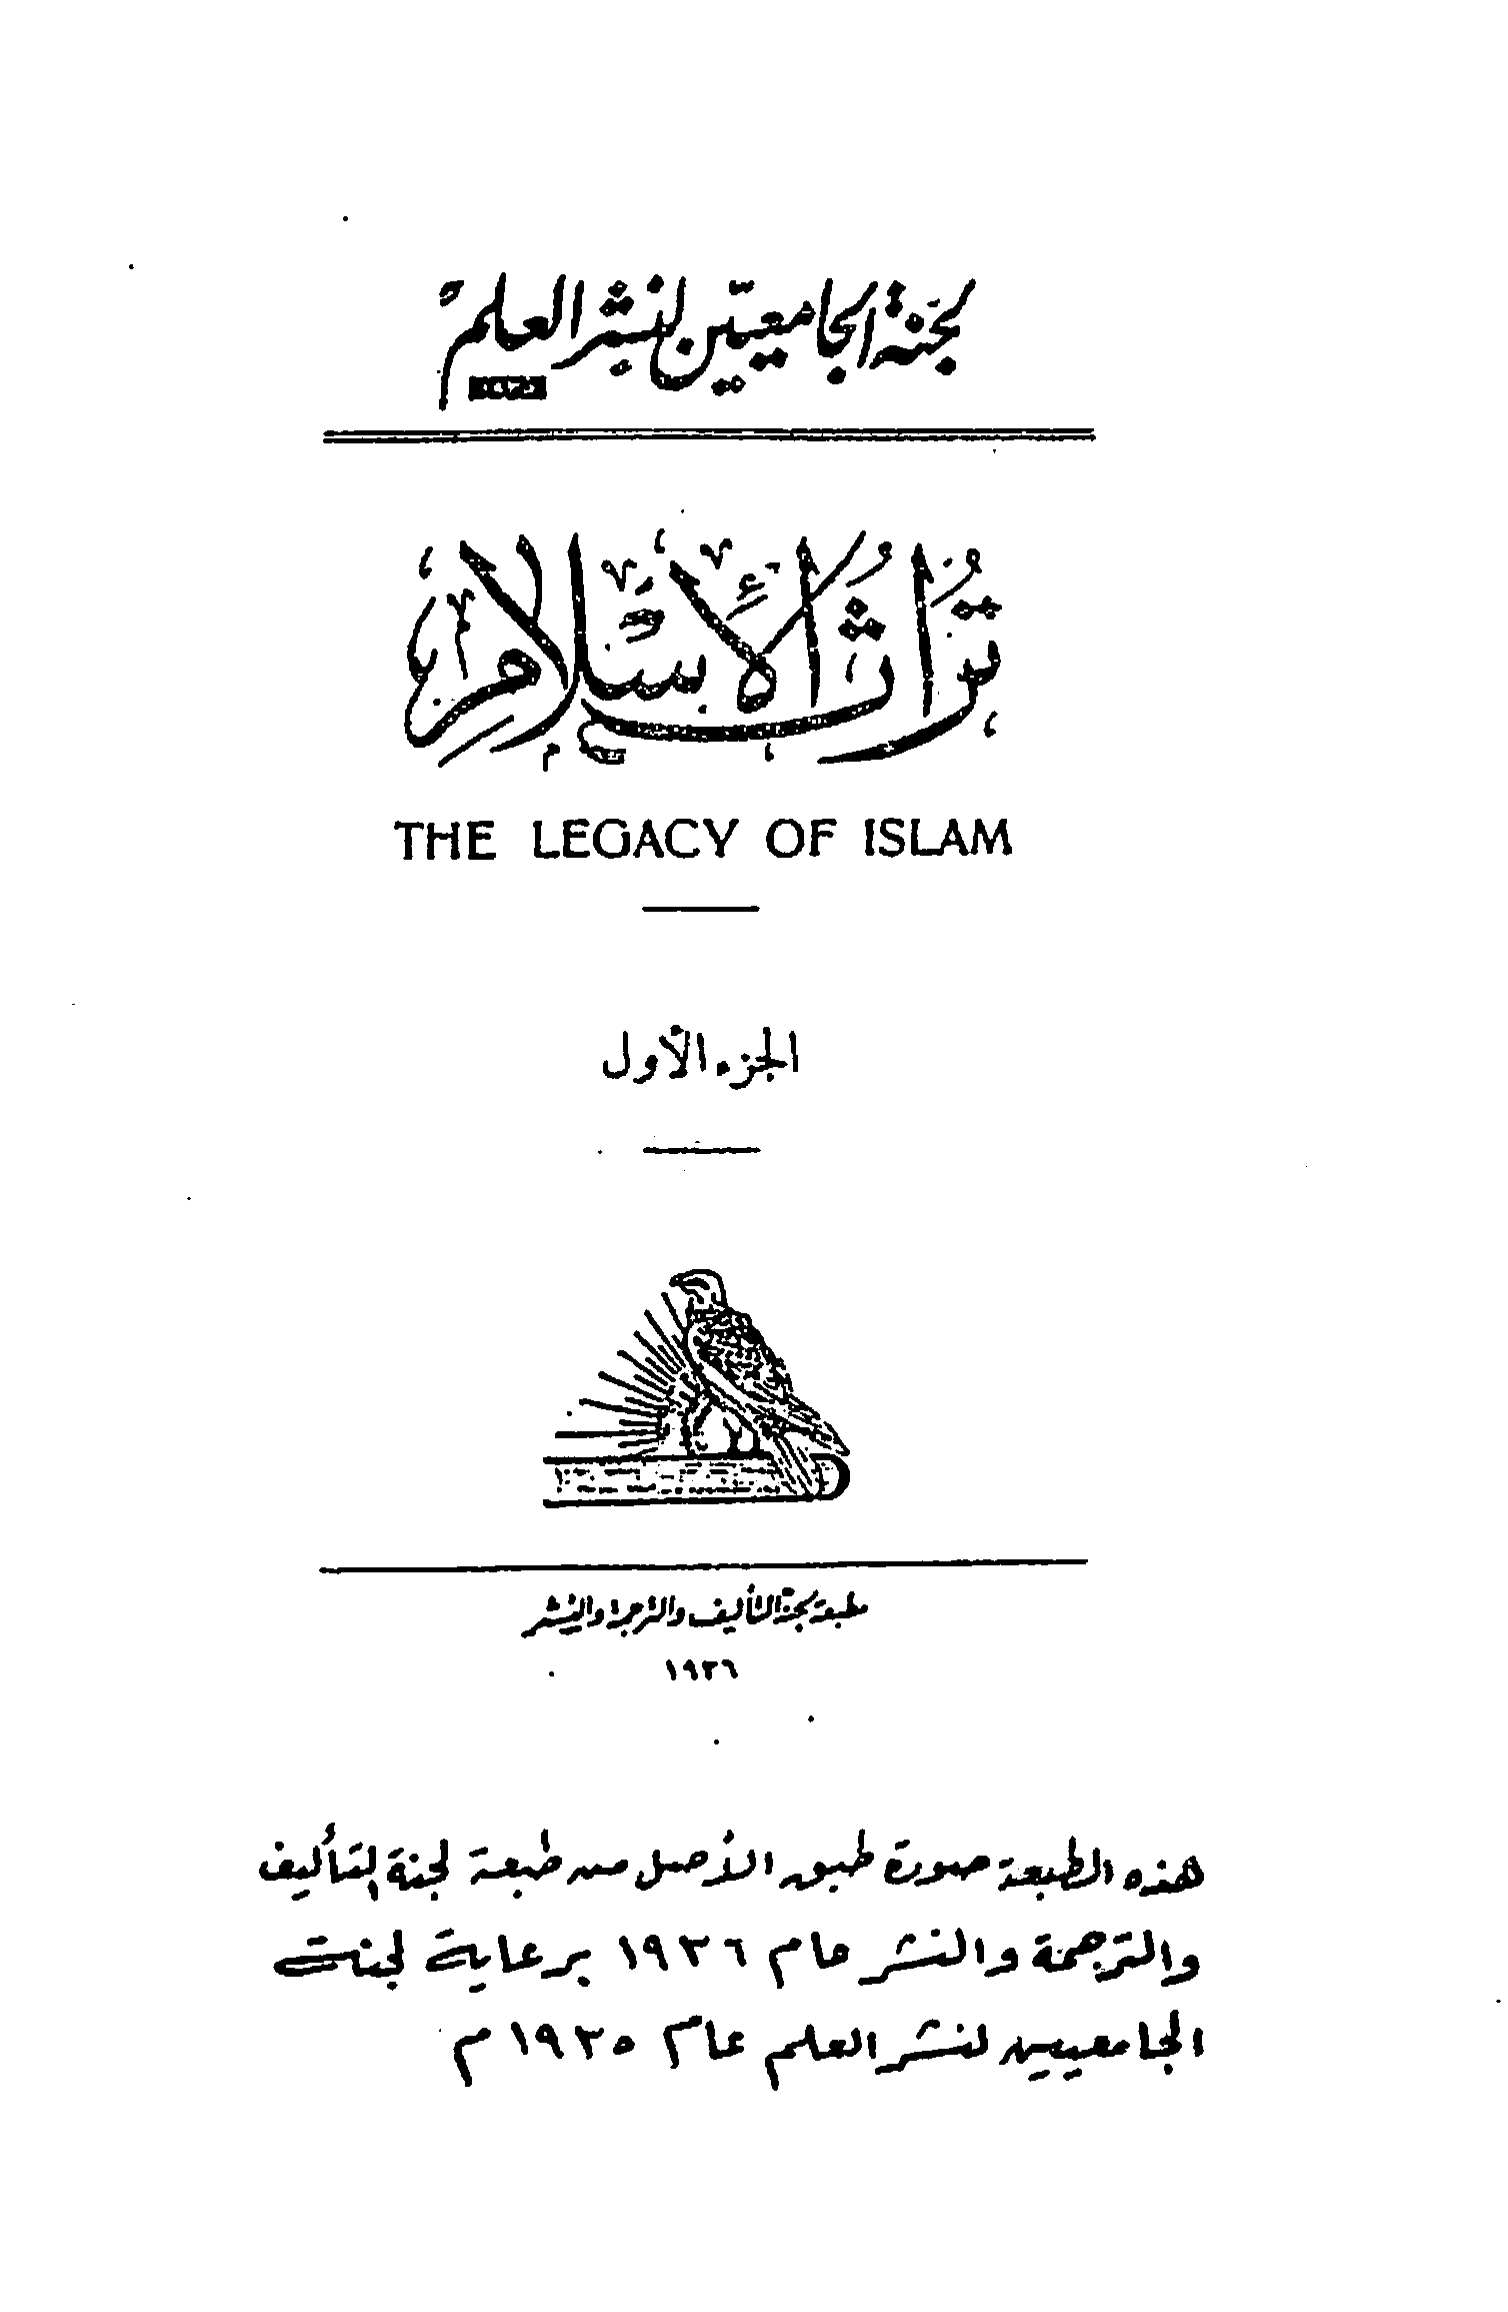 لجنة الجامعيين لنشر العلم
تراث الإسلام
THE LEGACY OF ISLAM
الجزء الأول
مطبعة لجنة التأليف والترجمة والنشر
١٩٣٦
هذه الطبعة صورة طبق الأصل من طبعة لجنة التأليف
والترجمة والنشر عام ١٩٣٦ برعاية لجنة
الجامعيين لنشر العلم عام ١٩٣٥ م